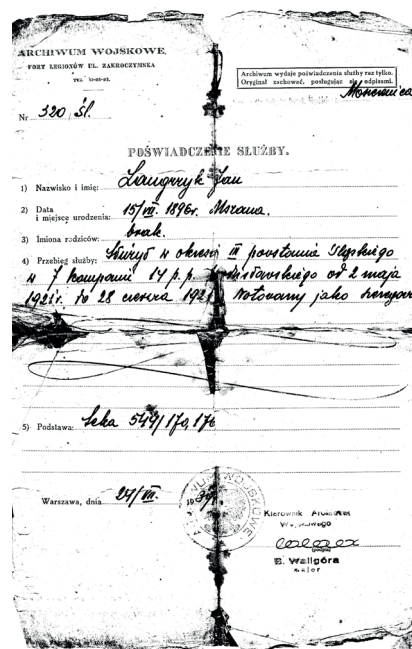 ARCHIWUM WOJSKOWE,
FORT LEGIONÓW UL. ZAKROCZYMSKA
TEL.
Archiwum wydaje poświadczenia służby raz tylko.
Oryginał zachować, posługując się odpisami.
Nr 320 Śl.
POŚWIADCZENIE SŁUŻBY.
1) Nazwisko i imię: Jan
2) Data i miejsce urodzenia: 15/VII. 1896r. Mszana.
3) Imiona rodziców: brak.
4) Przebieg służby: Służył w okresie III powstania Śląskiego
w 7 kompanii 14 p.p. od 2 maja
1921r. do 28 czerwca 1921 Notowany jako
5) Podstawa: 549/170,
Warszawa, dnia 24/VII. 193
ARCHIWUM WOJSKOWE
Kierownik Archiwum
Wojskowego
(podpis)
B. Waligóra
major